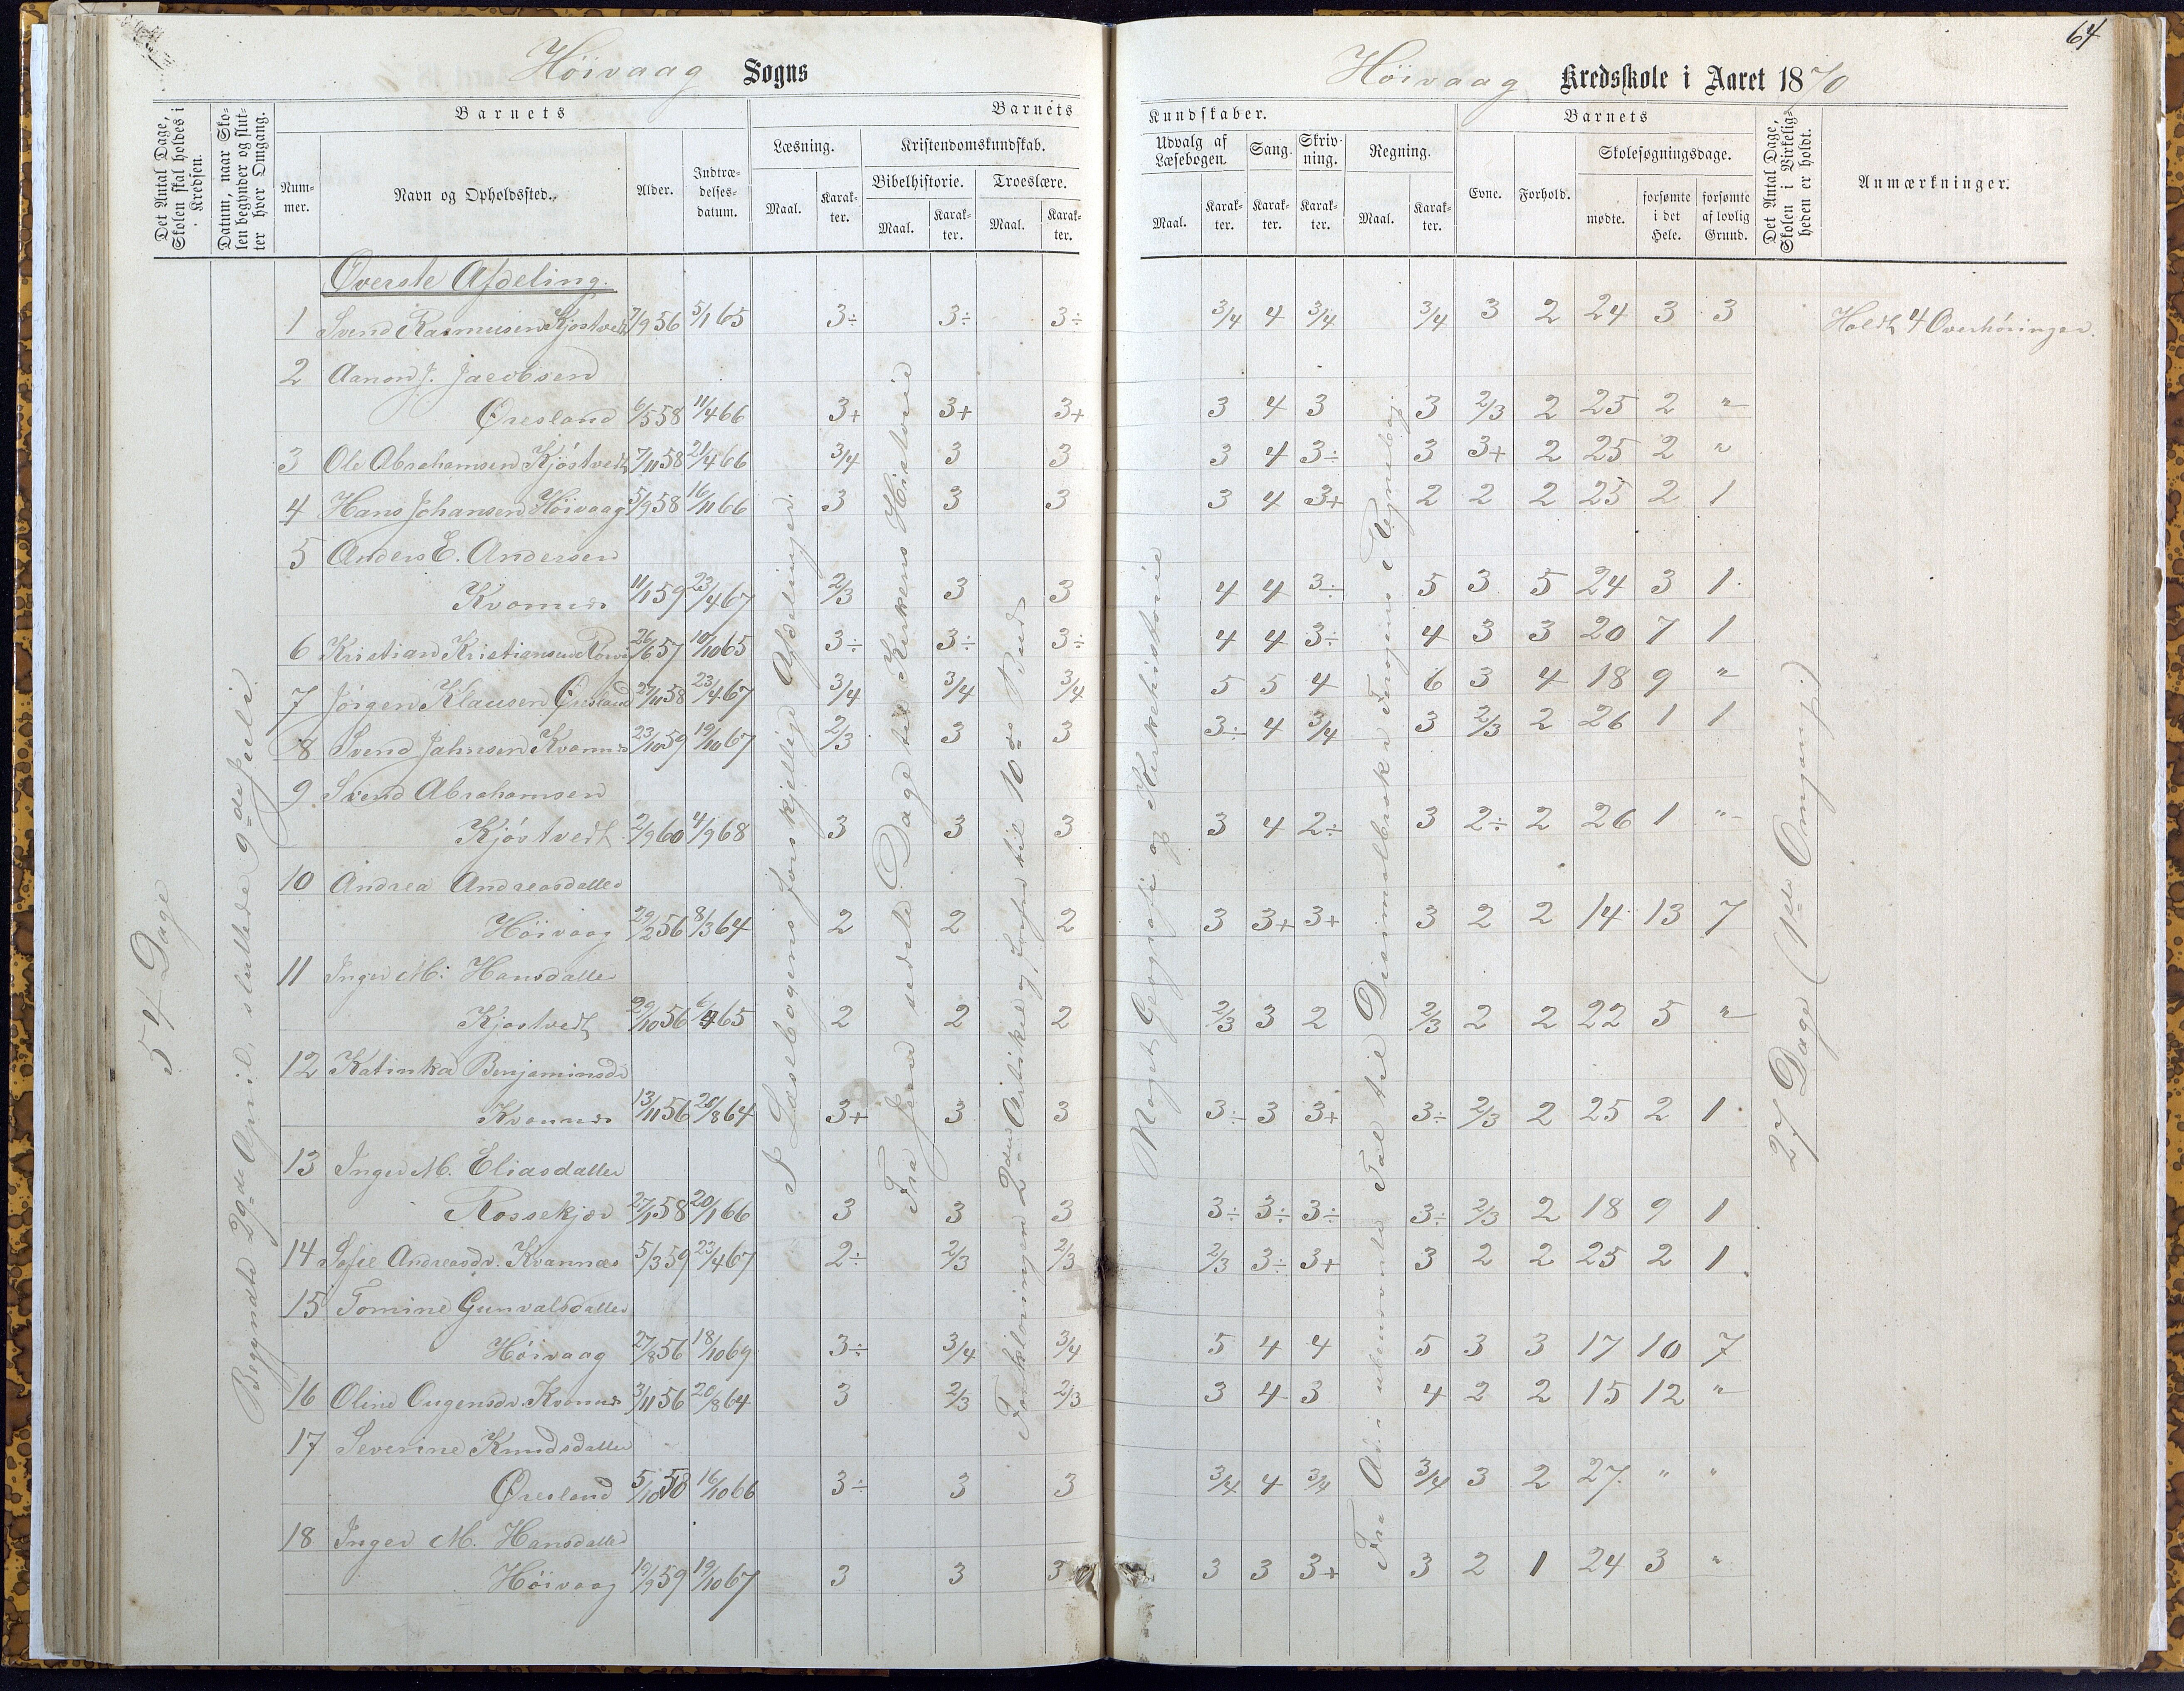 64
Höivaag Sogns
Höivaag Kredsskole i Aaret 1870
Det Antal Dage, Skolen skal holdes i Kredsen.
Datum, naar Skolen begynder og slutter hver Omgang.
Barnets
Nummer.
Navn og Opholdssted.
Alder.
Indtrædelsesdatum.
Barnets
Læsning.
Maal.
Karakter.
Kristendomskundskab.
Bibelhistorie.
Maal.
Karakter.
Troeslære.
Maal.
Karakter.
Kundskaber.
Udvalg af Læsebogen.
Maal.
Karakter.
Sang.
Karakter.
Skrivning.
Karakter.
Regning.
Maal.
Karakter.
Barnets
Evne.
Forhold.
Skolesøgningsdage.
mødte.
forsømte i det Hele.
forsømte af lovlig Grund.
Det Antal Dage, Skolen i Virkeligheden er holdt.
Anmærkninger.
54 Dage
Begyndte 29de April, sluttede 9de Juli.
I Læsebogens forskjellige Afdelinger.
Fra Jesu sidste Dage til Kirkens Historie
Forklaringen 2den Artikel og Loven til 10de Bud
Noget Geografi og Kirkehistorie
Fra Ad. i ubenævnte Tal til Desimalbrøk i Fergens Regnebog.
27 Dage (1ste Omgang)
Øverste Afdeling.
1 Svend Rasmusen Kjøstvedt 7/9 56 5/1 65 3÷ 3÷ 3÷ 3/4 4 3/4 3/4 3 2 24 3 3 Holdt 4 Overhøringer.
2 Aanon J. Jacobsen
Øresland 6/5 58 11/4 66 3+ 3+ 3+ 3 4 3 3 2/3 2 25 2 "
3 Ole Abrahamsen Kjöstvedt 7/11 58 21/4 66 3/4 3 3 3 4 3÷ 3 3+ 2 25 2 "
4 Hans Johansen Höivaag 5/9 58 16/11 66 3 3 3 3 4 3+ 2 2 2 25 2 1
5 Anders E. Andersen
Kvannes 11/1 59 23/4 67 2/3 3 3 4 4 3÷ 5 3 5 24 3 1
6 Kristian Kristiansen 26/6 57 10/10 65 3÷ 3÷ 3÷ 4 4 3÷ 4 3 3 20 7 1
7 Jörgen Klausen Øresland 27/11 58 23/4 67 3/4 3/4 3/4 5 5 4 6 3 4 18 9 "
8 Svend Jahnsen Kvannes 23/10 59 19/10 67 2/3 3 3 3÷ 4 3/4 3 2/3 2 26 1 1
9 Svend Abrahamsen
Kjöstvedt 2/9 60 4/9 68 3 3 3 3 4 2÷ 3 2÷ 2 26 1 "
10 Andrea Andreasdatter
Höivaag 29/2 56 8/3 64 2 2 2 3 3+ 3+ 3 2 2 14 13 7
11 Inger M. Hansdatter
Kjøstvedt 29/10 56 6/4 65 2 2 2 2/3 3 2 2/3 2 2 22 5 "
12 Katinka Benjaminsdr
Kvannes 13/11 56 26/8 64 3+ 3 3 3÷ 3 3+ 3÷ 2/3 2 25 2 1
13 Inger M. Eliasdatter
Rossekjær 27/1 58 20/1 66 3 3 3 3÷ 3÷ 3÷ 3÷ 2/3 2 18 9 1
14 Sofie Andreasdr. Kvannæs 5/3 59 23/4 67 2÷ 2/3 2/3 2/3 3÷ 3+ 3 2 2 25 2 1
15 Tomine Gunvalsdatter
Höivaag 27/8 56 18/10 69 3÷ 3/4 3/4 5 4 4 5 3 3 17 10 7
16 Oline Ougensdr. Kvannes 3/11 56 20/8 64 3 2/3 2/3 3 4 3 4 2 2 15 12 "
17 Severine Knudsdatter
Øresland 5/10 58 16/10 66 3÷ 3 3 3/4 4 3/4 3/4 3 2 27 " "
18 Inger M. Hansdatter
Höivaag 19/9 59 19/10 67 3 3 3 3 3 3+ 3 2 1 24 3 "